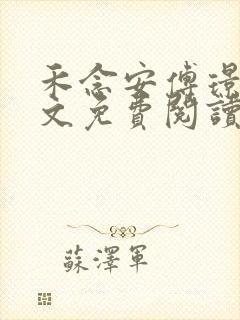 禾念安傅璟
文免費閱讀
蘇澤軍